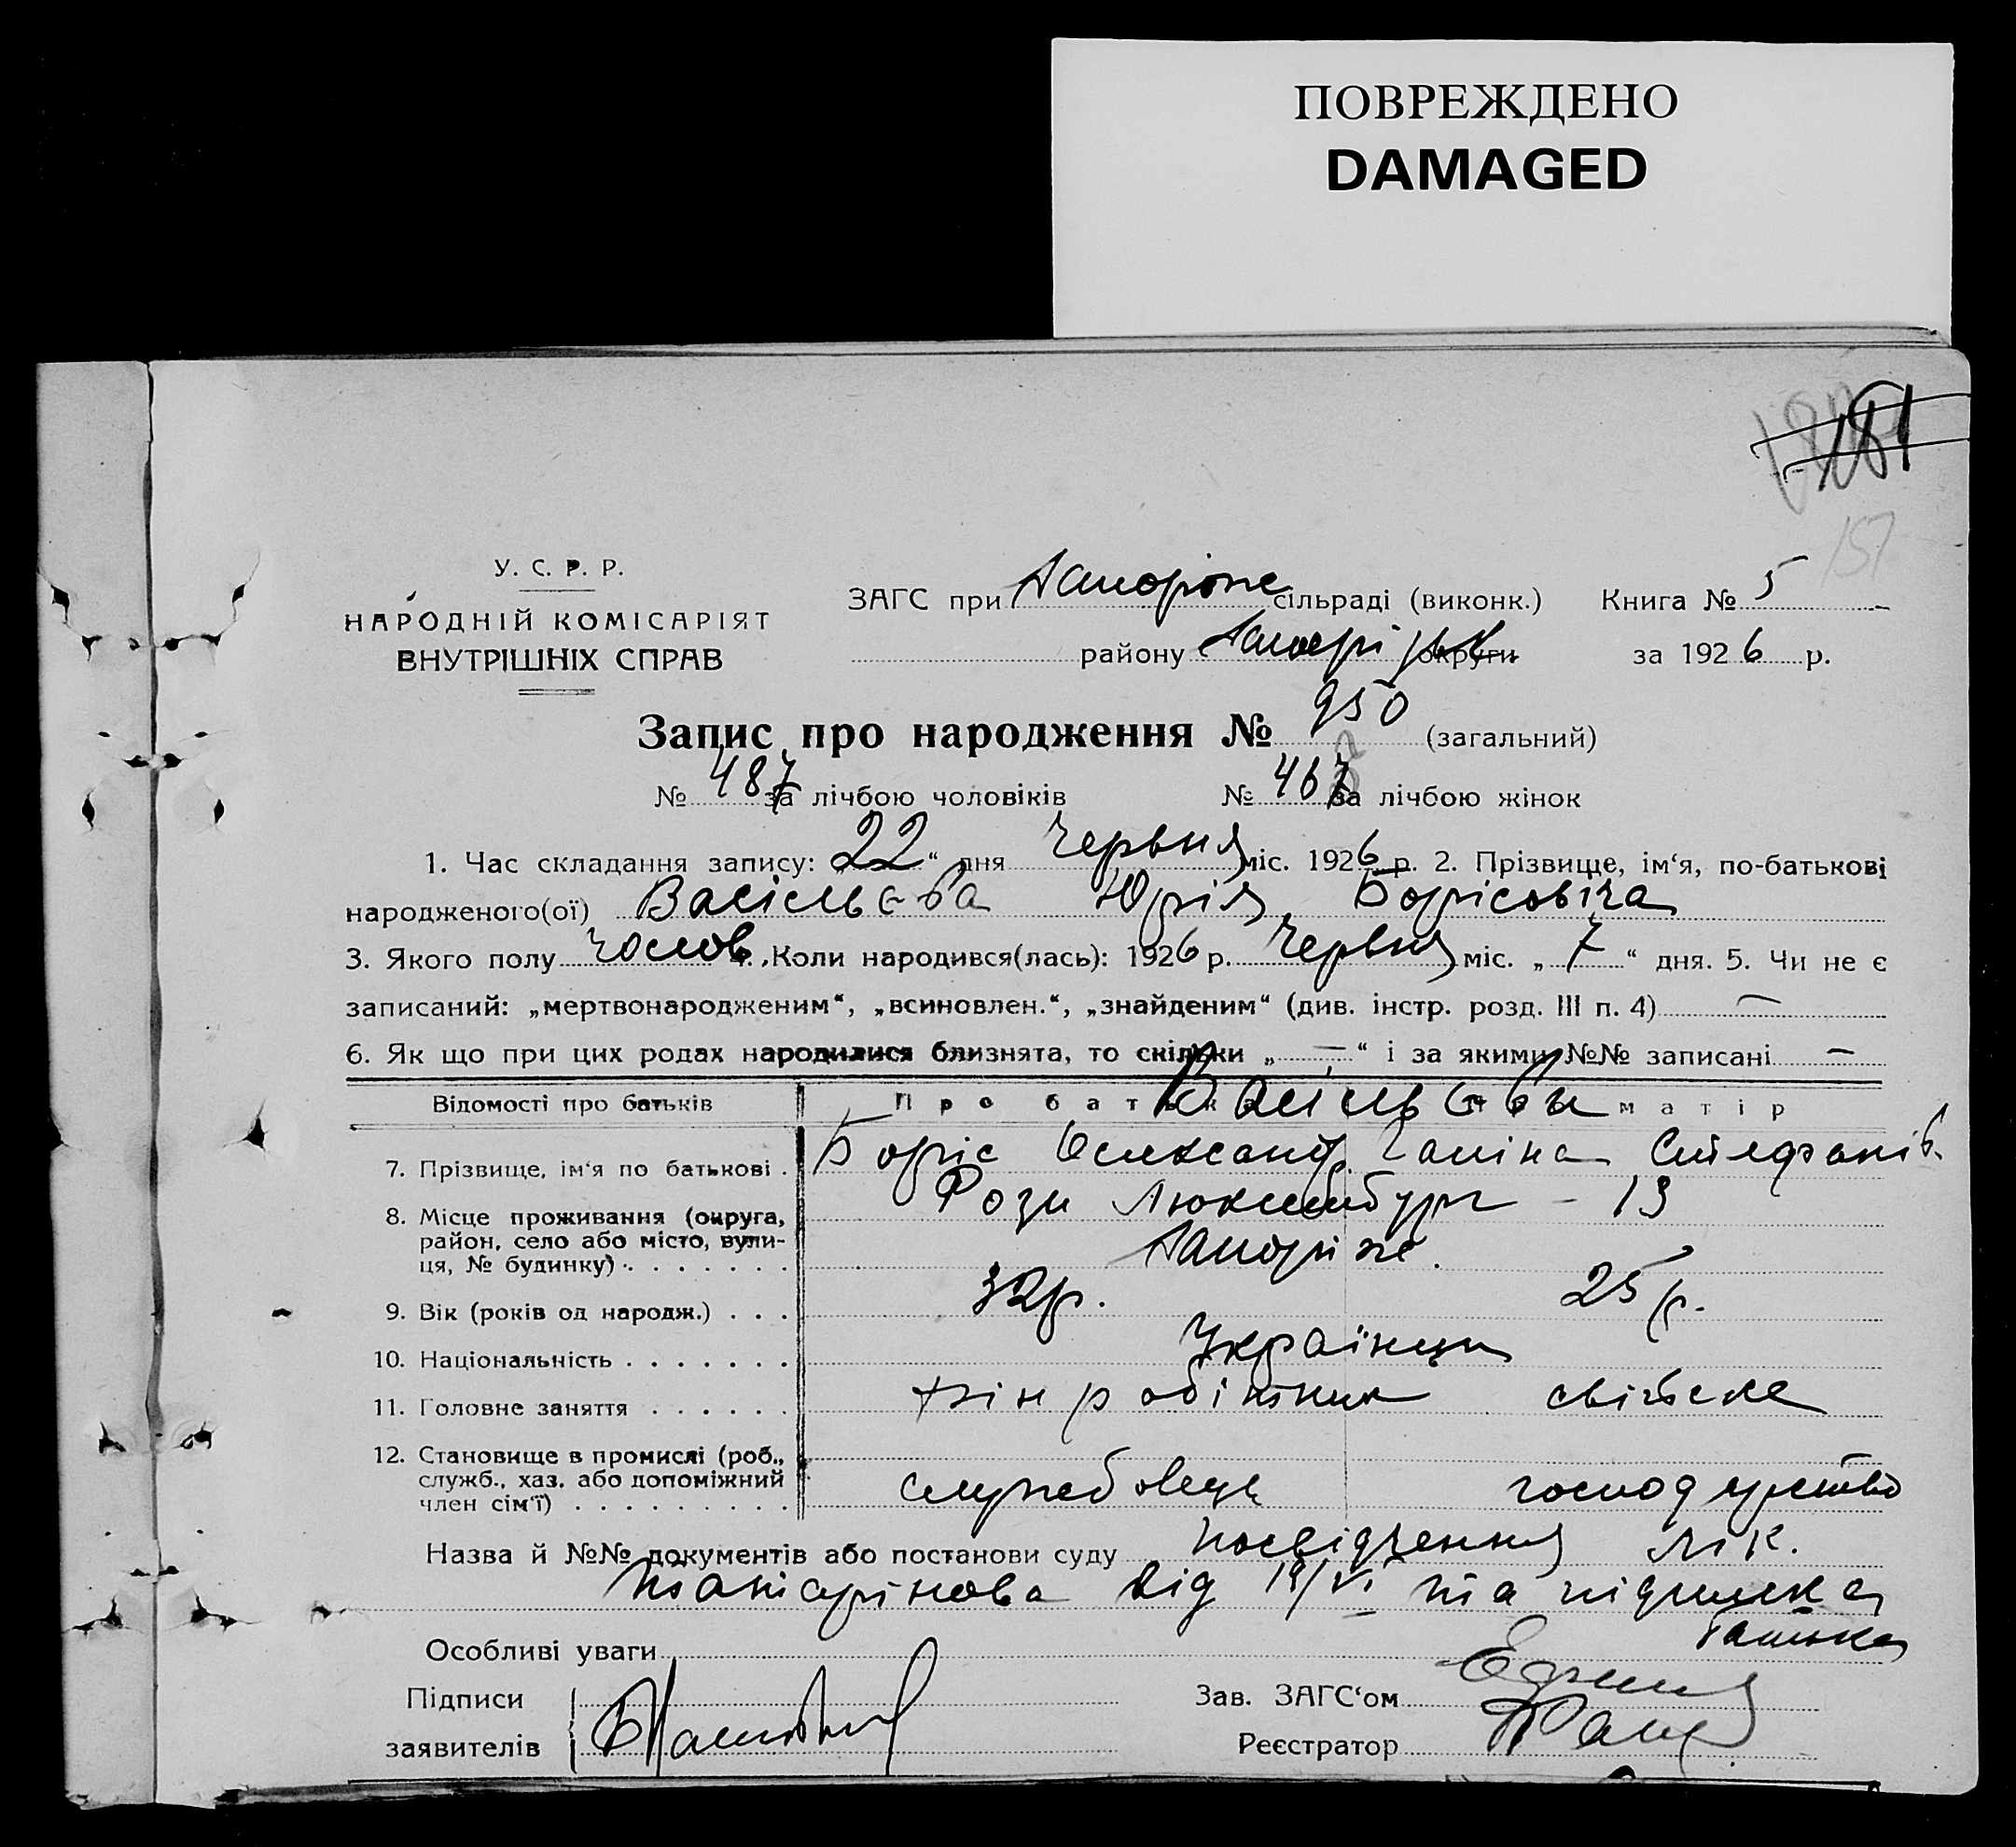 ПОВРЕЖДЕНО
DAMAGED
181
151
У. С. Р. Р.
НАРОДНІЙ КОМІСАРІЯТ
ВНУТРІШНІХ СПРАВ
ЗАГС при Запоріже сільраді (виконк.) Книга № 5
району округи за 1926 р.
Запис про народження № 950 (загальний)
№ 487 за лічбою чоловіків № 467 за лічбою жінок
1. Час складання запису: „22“ дня Червня міс. 1926 р. 2. Прізвище, ім‘я, по-батькові
народженого(ої) Васільєва Юрія Борісовіча
3. Якого полу чолов. 4. Коли народився(лась): 1926 р. Червня міс. „7“ дня. 5. Чи не є
записаний: „мертвонародженим“, „всиновлен.“, „знайденим“ (див. інстр. розд. III п. 4) —
6. Як що при цих родах народилися близнята, то скільки „—“ і за якими №№ записані —
Відомості про батьків Про батька матір
Васільєвы
7. Прізвище, ім‘я по батькові . Боріс Олександ. Галіна Стефанів.
8. Місце проживання (округа, район, село або місто, вули-ця, № будинку) . . . . . . . Рози Люксембург – 13
Запоріже.
9. Вік (років од народж.) . . . 32 р. 25 р.
10. Національність . . . . . . . Українци
11. Головне заняття . . . . . . фінробітник свійске
12. Становище в промислі (роб., служб., хаз. або допоміжний член сім‘ї) . . . . . . . . . службовець господарство
Назва й №№ документів або постанови суду посвідчення лік.
від 19/VI та підписка
батька
Особливі уваги
Підписи
заявителів
Зав. ЗАГС‘ом
Реєстратор